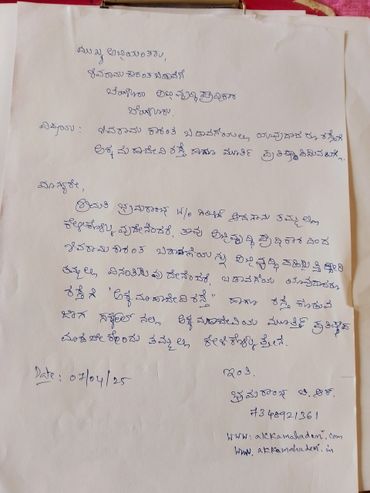 ಮುಖ್ಯ ಅಭಿಯಂತರು,
ಶಿವರಾಮ ಕಾರಂತ ಬಡಾವಣೆ
ಬೆಂಗಳೂರು ಅಭಿವೃದ್ಧಿ ಪ್ರಾಧಿಕಾರ
ಬೆಂಗಳೂರು
ವಿಷಯ: ಶಿವರಾಮ ಕಾರಂತ ಬಡಾವಣೆಯಲ್ಲಿ ಯಾವುದಾದರೂ ರಸ್ತೆಗೆ
ಅಕ್ಕಮಹಾದೇವಿ ರಸ್ತೆ ಹಾಗೂ ಮೂರ್ತಿ ಪ್ರತಿಷ್ಠಾಪಿಸುವ
ಮಾನ್ಯರೇ,
ಶ್ರೀಮತಿ ಭ್ರಮರಾಂಭ W/o ಆದ ನಾನು ತಮ್ಮಲ್ಲಿ
ಕೇಳಿಕೊಳ್ಳುವುದೇನೆಂದರೆ, ತಾವು ಅಭಿವೃದ್ಧಿ ಪ್ರಾಧಿಕಾರದಿಂದ
ಶಿವರಾಮ ಕಾರಂತ ಬಡಾವಣೆಯನ್ನು ಅಭಿವೃದ್ಧಿ ಪಡಿಸುತ್ತಿದ್ದು
ತಮ್ಮಲ್ಲಿ ವಿನಂತಿಸುವುದೇನೆಂದರೆ, ಬಡಾವಣೆಯ ಯಾವುದಾದರೂ
ರಸ್ತೆಗೆ "ಅಕ್ಕಮಹಾದೇವಿ ರಸ್ತೆ" ಹಾಗೂ ರಸ್ತೆ ಕೂಡುವ
ಜಾಗ ಸರ್ಕಲ್ ನಲ್ಲಿ ಅಕ್ಕಮಹಾದೇವಿಯ ಮೂರ್ತಿ ಪ್ರತಿಷ್ಠಾಪನೆ
ಮಾಡಬೇಕೆಂದು ತಮ್ಮಲ್ಲಿ ಕೇಳಿಕೊಳ್ಳುತ್ತೇನೆ.
Date: 07/04/25
ಇಂತಿ.
ಭ್ರಮರಾಂಭ ಬಿ.ಆರ್.
7348921361
www.akkamahadevi.com
www.akkamahadevi.in